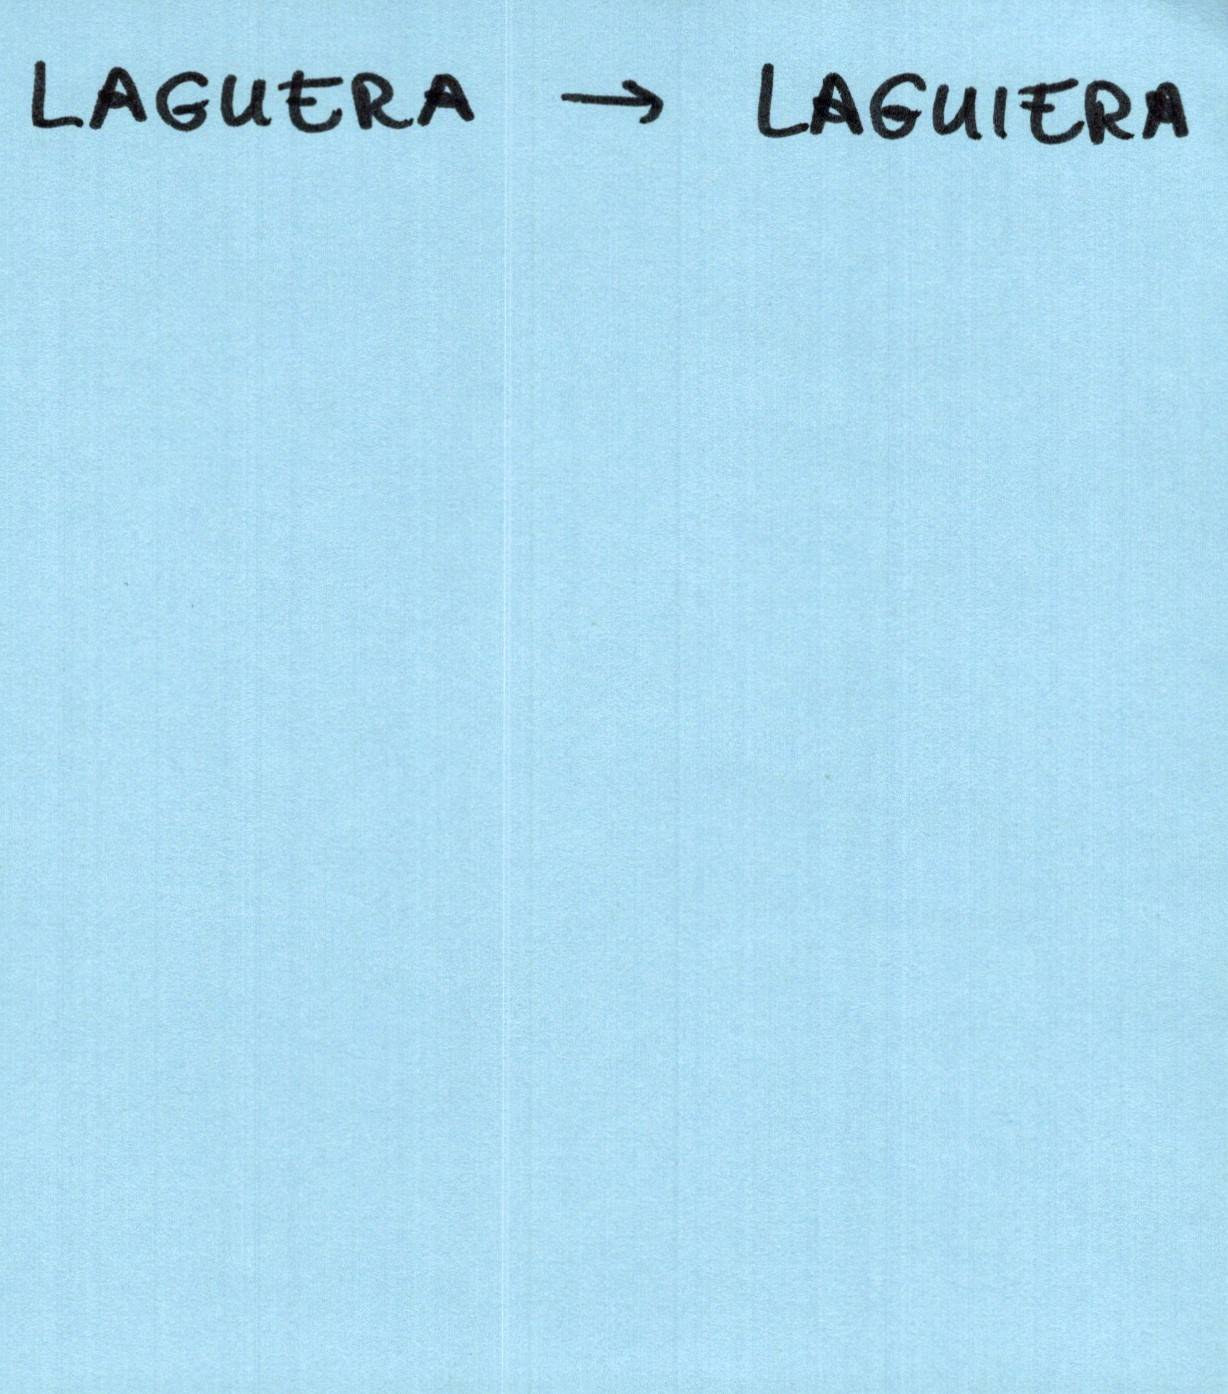 LAGUERA → LAGUIERA